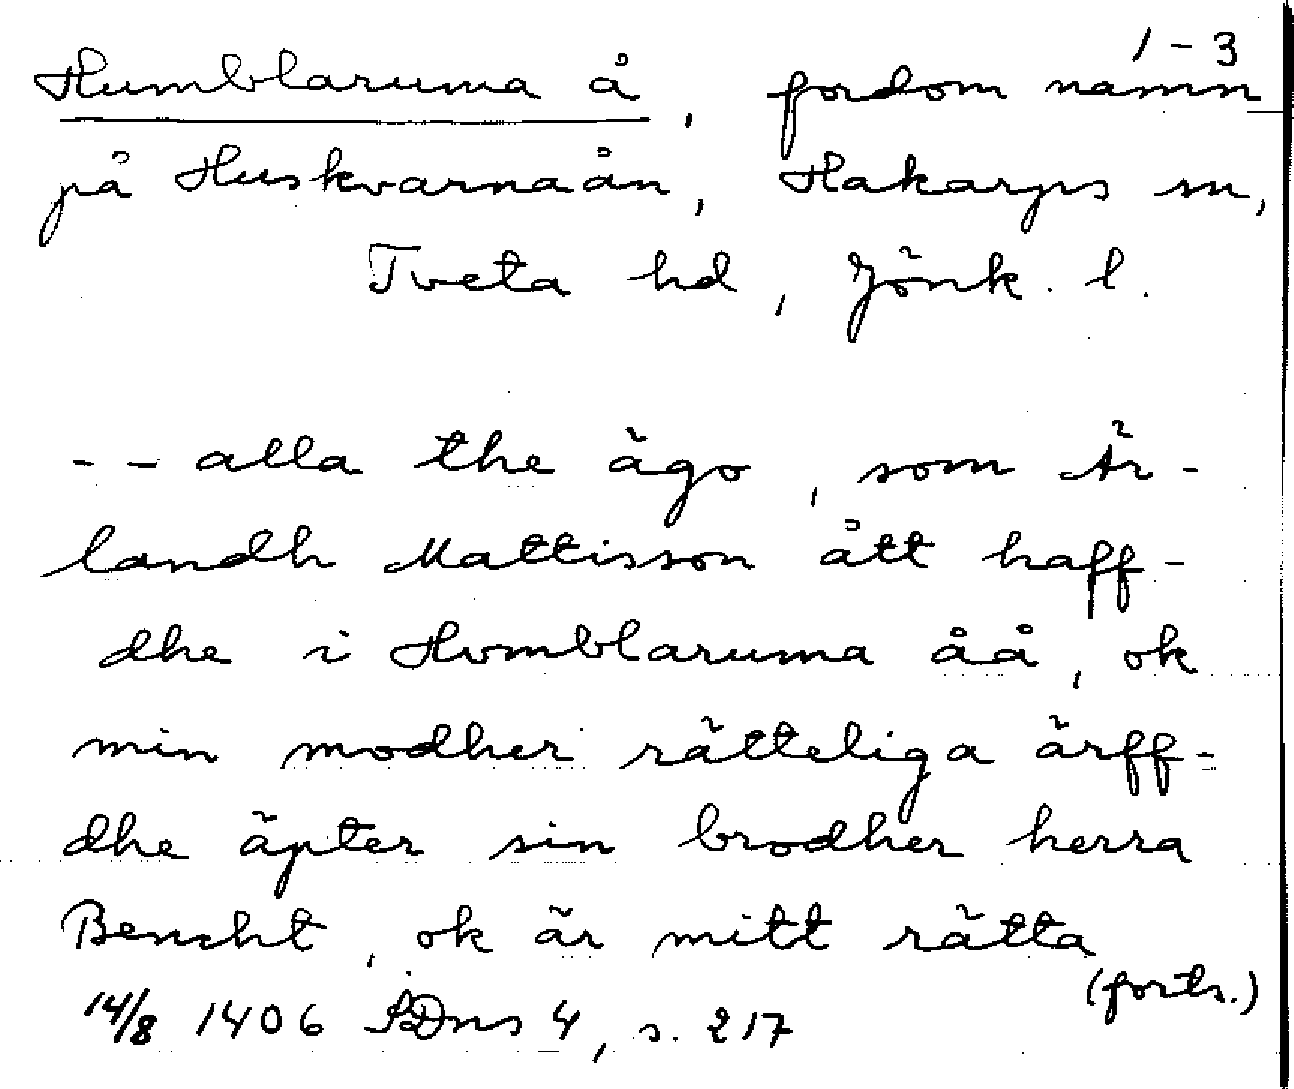 1-3
Humblaruma å, fordom namn
på Huskvarnaån, Hakarps sn,
Tveta hd, Jönk. l.
-- alla the ägo, som Är-
landh Mattisson ått haff-
dhe i Hvmblaruma åå, ok
min modher rätteliga ärff-
dhe äpter sin brodher herra
Bencht, ok är mitt rätta
(forts.)
14/8 1406 SDns 4, s. 217